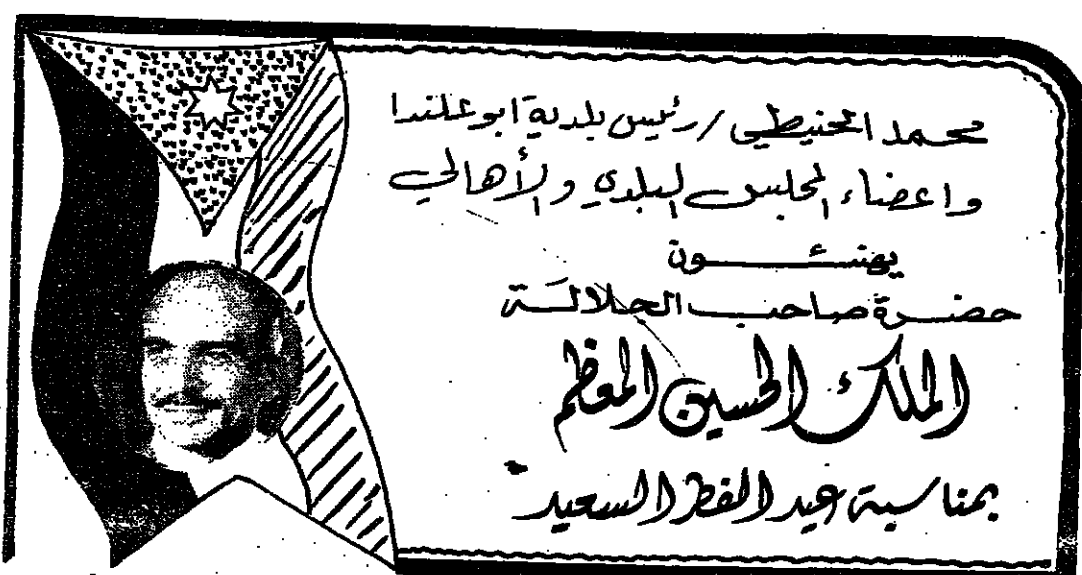 محمد الحنيطي / رئيس بلدية ابو علندا
واعضاء المجلس البلدي والأهالي
يهنئــــون
حضــرة صاحــب الجلالــة
الملك الحسين المعظم
بمناسبة عيد الفطر السعيد